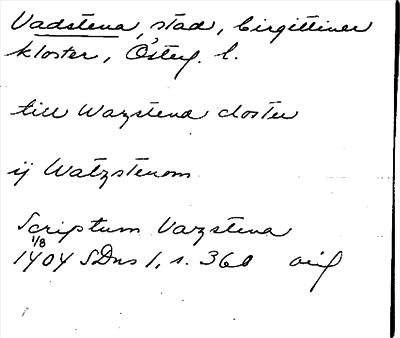 Vadstena, stad, birgittiner
kloster, Österg. l.
till Wazstena closter
ij Watzstenom
Scriptum Vazstena
1/8
1404 SDns 1, s. 360 orig